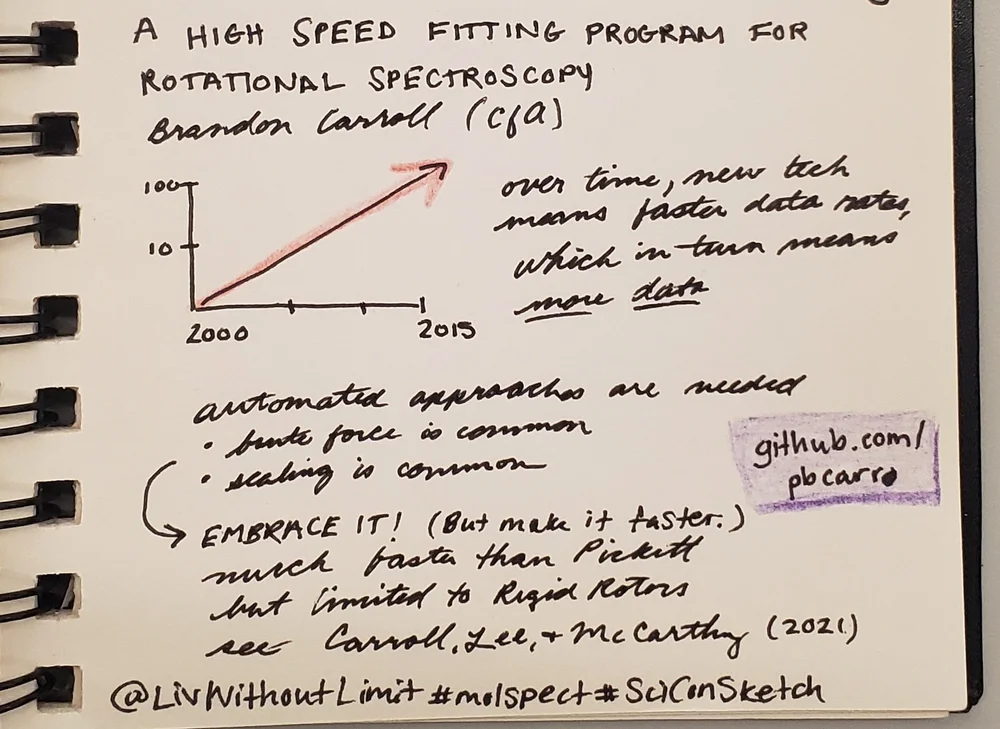 A HIGH SPEED FITTING PROGRAM FOR
ROTATIONAL SPECTROSCOPY
Brandon Carroll (CfA)
100
10
2000
2015
over time, new tech
means faster data rates,
which in turn means
more data
automated approaches are needed
• brute force is common
• scaling is common
EMBRACE IT! (But make it faster.)
much faster than Pickett
but limited to Rigid Rotors
see Carroll, Lee, + McCarthy (2021)
github.com/
pbcarro
@LivWithoutLimit #molspect #SciConSketch